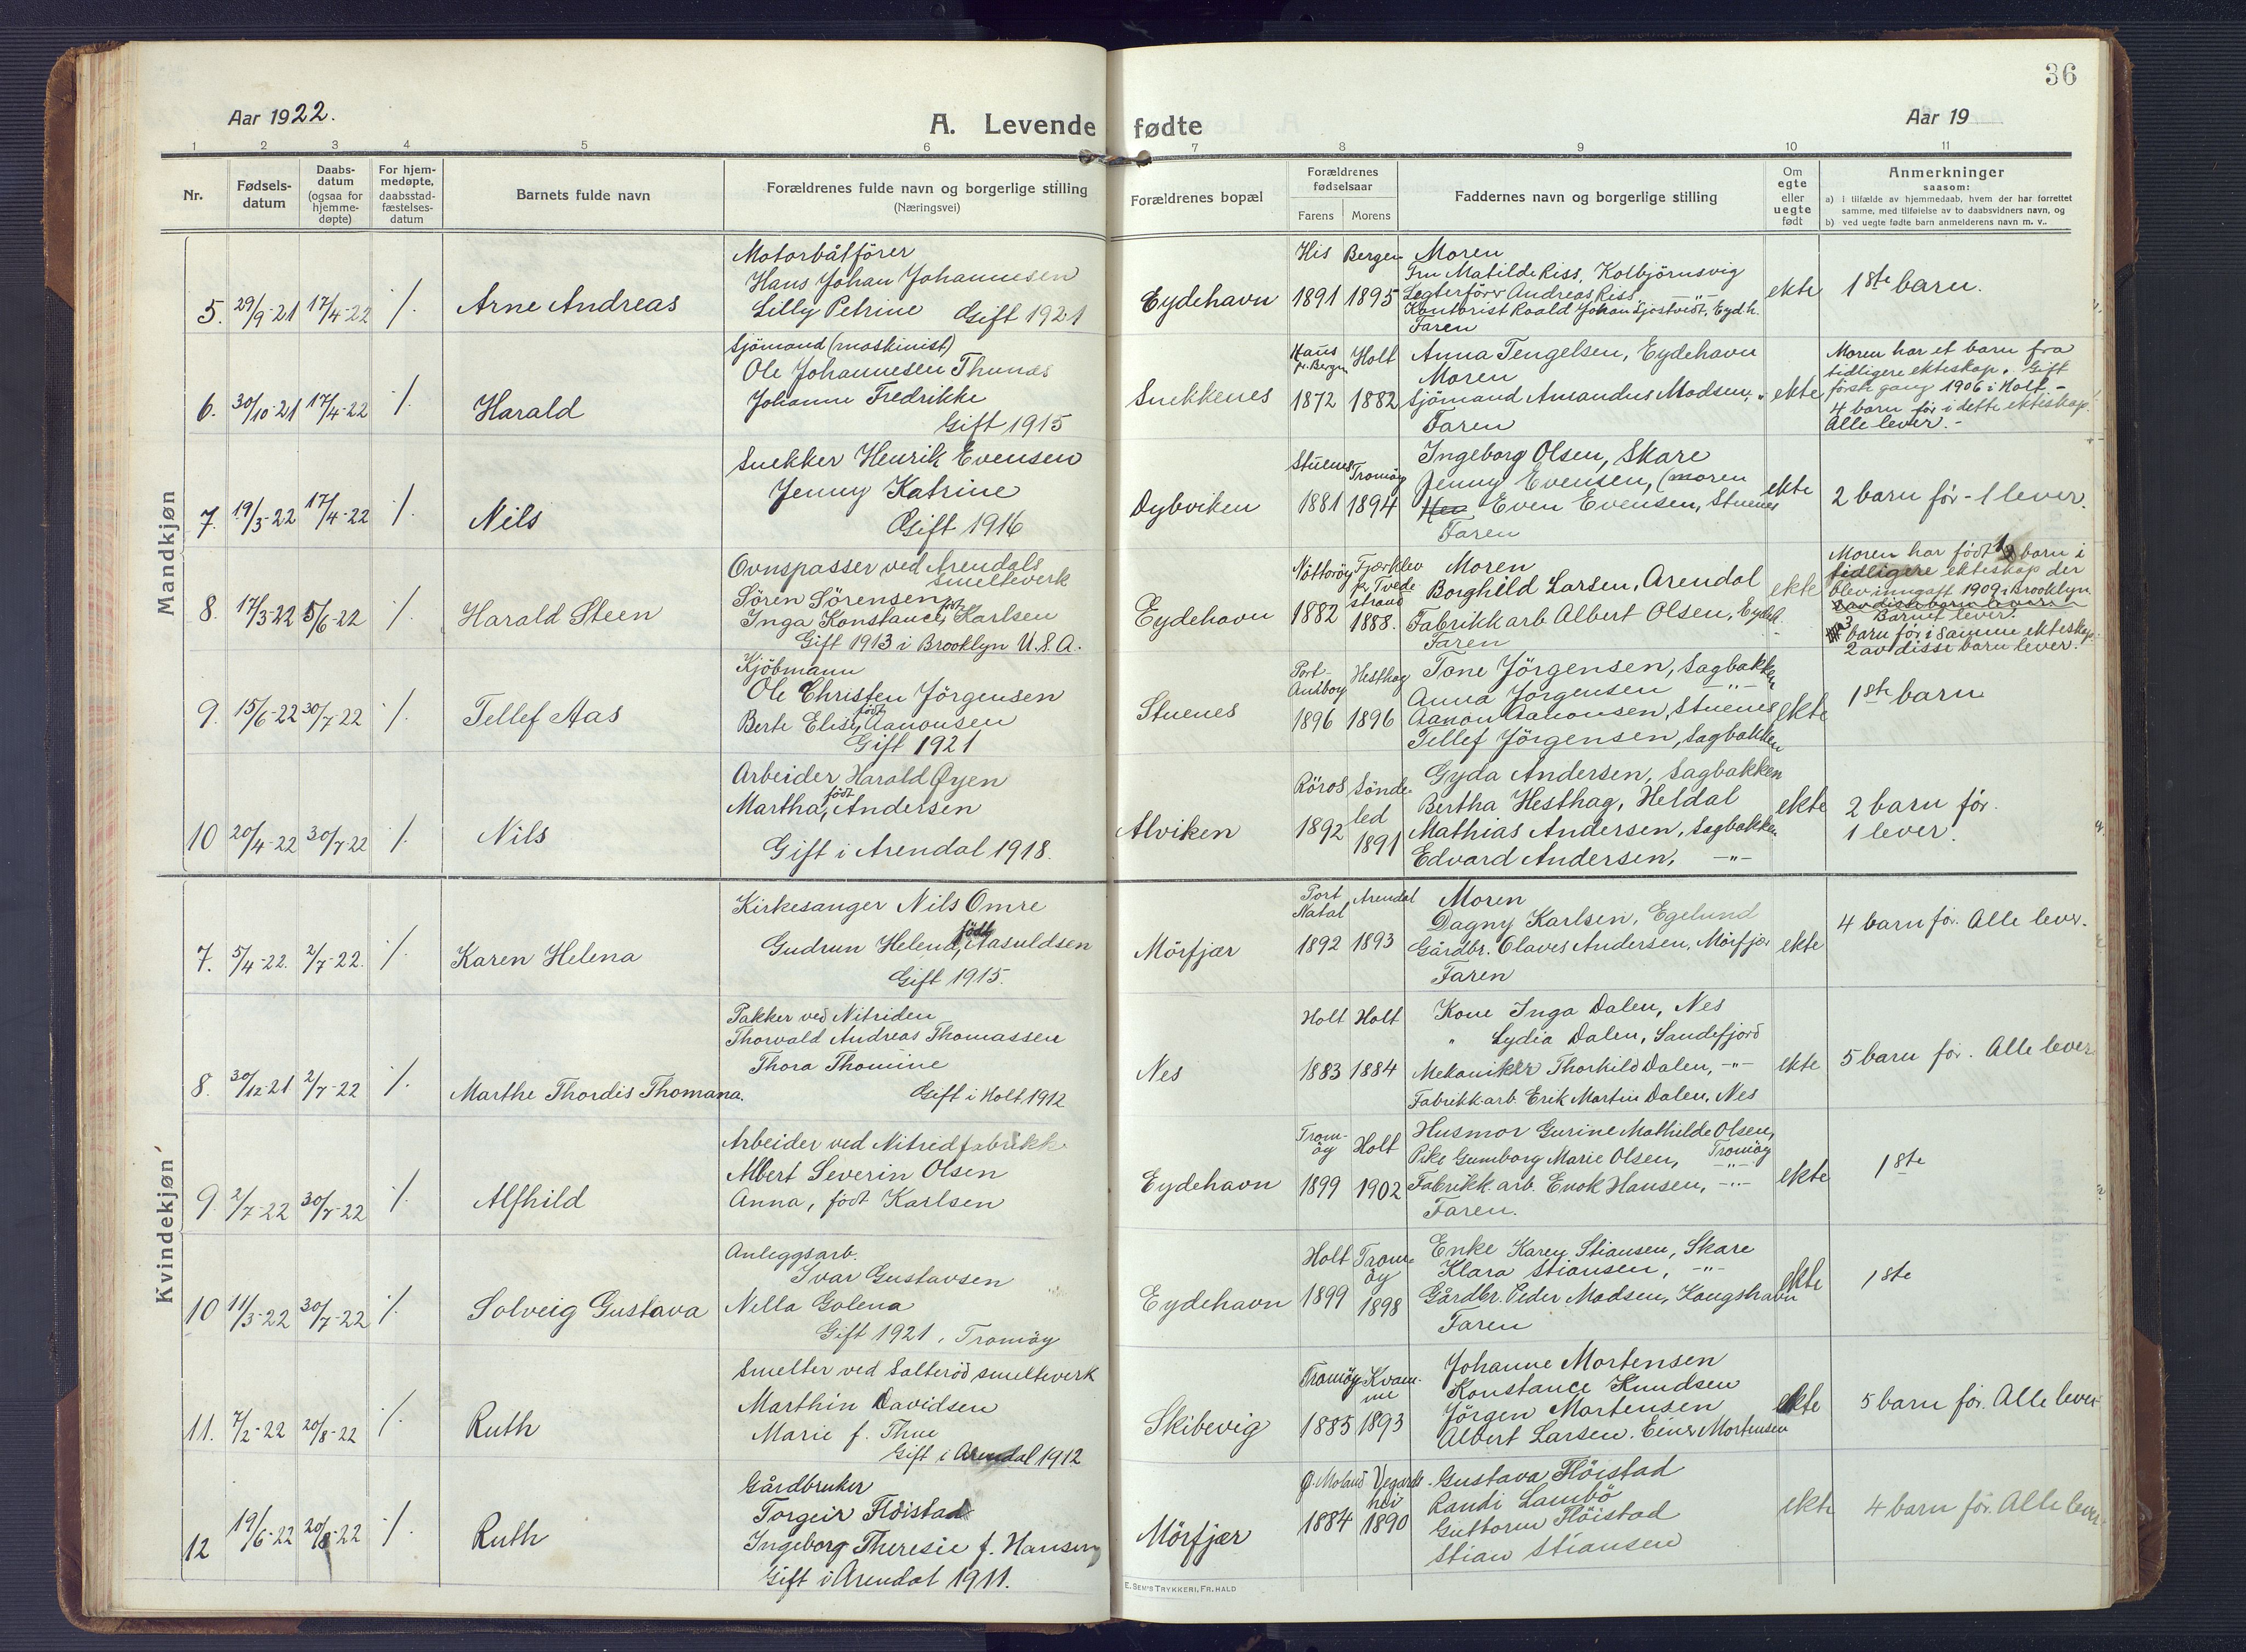 36
Aar 1922.
A. Levende fødte
Aar 19
1 2 3 4 5 6 7 8 9 10 11
Nr.
Fødsels-
datum
Daabs-
datum
(ogsaa for
hjemme-
døpte)
For hjem-
medøpte,
daabsstad-
fæstelses-
datum
Barnets fulde navn
Forældrenes fulde navn og borgerlige stilling
(Næringsvei)
Forældrenes bopæl
Forældrenes
fødselsaar
Farens Morens
Faddernes navn og borgerlige stilling
Om
egte
eller
uegte
født
Anmerkninger
saasom:
a) i tilfælde av hjemmedaab, hvem der har forrettet
samme, med tilføielse av to daabsvidners navn, og
b) ved uegte fødte barn anmelderens navn m. v..
Mandkjøn
5. 29/9-21 17/4-22 ⁒ Arne Andreas
Motorbåtförer
Hans Johan Johannesen
Lilly Petrine Gift 1921
Eydehavn
His 1891
Bergen 1895
Moren
Fru Matilde Riss, Kolbjörnsvig
Legterförer Andreas Riss —"—
Kontorist Roald Johan Sjostvedt, Eydh.
Faren
ekte
1ste barn.
6. 30/10-21 17/4-22 ⁒ Harald
Sjömand (maskinist)
Ole Johannesen Thunæs
Johanne Fredrikke
Gift 1915
Snekkenes
Haus pr. Bergen 1872
Holt 1882
Anna Tengelsen, Eydehavn
Moren
Sjömand Amandus Madsen, "
Faren
ekte
Moren har et barn fra
tidligere ekteskap. Gift
förste gang 1906 i Holt -
4 barn för i dette ekteskap.
Alle lever. -
7. 19/3-22 17/4-22 ⁒ Nils
Snekker Henrik Evensen
Jenny Katrine
Gift 1916
Dybviken
Stuenes 1881
Tromöy 1894
Ingeborg Olsen, Skare
Jenny Evensen, (moren
Even Evensen, Stuenes
Faren
ekte
2 barn för - 1 lever.
8. 17/3-22 5/6-22 ⁒ Harald Steen
Ovnspasser ved Arendals
smelteverk
Sören Sörensen
Inga Konstance, født Karlsen
Gift 1913 i Brooklyn U.S.A.
Eydehavn
Nötteröy 1882
Fjærklev p. Tvede strand 1888.
Moren
Borghild Larsen, Arendal
Fabrikkarb Albert Olsen, Eydeh.
Faren
ekte
Moren har født 1 barn i
tidligere ekteskap der
blev inngått 1909 i Brooklyn
Barnet lever.
3 barn för i samme ekteskap.
2 av disse barn lever.
9. 15/6-22 30/7-22 ⁒ Tellef Aas
Kjöbmann
Ole Christen Jörgensen
Berte Elise, født Aanonsen
Gift 1921
Stuenes
1896
Hesthag 1896
Tone Jörgensen, Sagbakken
Anna Jörgensen —"—
Aanon Aanonsen, Stuenes
Tellef Jörgensen, Sagbakken
ekte
1ste barn
10 20/4-22 30/7-22 ⁒ Nils
Arbeider Harald Øyen
Martha, født Andersen
Gift i Arendal 1918.
Alviken
Röros 1892
Sönde-led 1891
Gyda Andersen, Sagbakken
Bertha Hesthag, Heldal
Mathias Andersen, Sagbakken
Edvard Andersen, —"—
ekte
2 barn för.
1 lever.
Kvindekjøn
7. 5/4-22. 2/7-22. ⁒ Karen Helena
Kirkesanger Nils Omre
Gudrun Helena, född Aasuldsen
Gift 1915.
Mörfjær
Port Natal 1892
Arendal 1893
Moren
Dagny Karlsen, Egelund
Gårdbr. Olaves Andersen, Mörfjær
Faren
ekte
4 barn för. Alle lever.
8. 30/12-21 2/7-22 ⁒ Marthe Thordis Thomana.
Pakker ved Nitriden
Thorvald Andreas Thomassen
Thora Thomine
Gift i Holt 1912
Nes
Holt 1883
Holt 1884
Kone Inga Dalen, Nes
" Lydia Dalen, Sandefjord
Mekaniker Thorkild Dalen, —"—
Fabrikkarb. Erik Martin Dalen, Nes
ekte
5 barn för. Alle lever.
9. 2/7-22 30/7-22 ⁒ Alfhild
Arbeider ved Nitridfabrikk
Albert Severin Olsen
Anna, född Karlsen
Eydehavn
Trom-öy 1899
Holt 1902
Husmor Gurine Mathilde Olsen,
Pike Gumborg Marie Olsen, Tromöy
Fabrikk arb. Enok Hansen, —"—
Faren.
ekte
1ste
10 11/3-22 30/7-22 ⁒ Solveig Gustava
Anleggsarb.
Ivar Gustavsen
Nella Golena
Gift 1921, Tromöy
Eydehavn
Holt 1899
Trom-öy 1898
Enke Karen Stiansen, Skare
Klara Stiansen, —"—
Gårdbr. Peder Madsen, Kongshavn
Faren
ekte
1ste
11. 7/2-22 20/8-22 ⁒ Ruth
Smelter ved Salteröd smelteverk
Marthin Davidsen
Marie f. Thue
Gift i Arendal 1912
Skibevig
Tromöy 1885
Kvam-me 1893
Johanne Mortensen
Konstance Knudsen
Jörgen Mortensen
Albert Larsen. Einer Mortensen
ekte
5 barn för. Alle lever
12 19/6-22 20/8-22 ⁒ Ruth
Gårdbruker
Torgeir Flöistad
Ingeborg Theresie f. Hansen
Gift i Arendal 1911.
Mörfjær
Ø. Moland 1884
Vegårds-hei 1890
Gustava Flöistad
Randi Lambö
Guttorm Flöistad
Stian Stiansen
ekte
4 barn för. Alle lever.
E. SEM'S TRYKKERI, FR.HALD